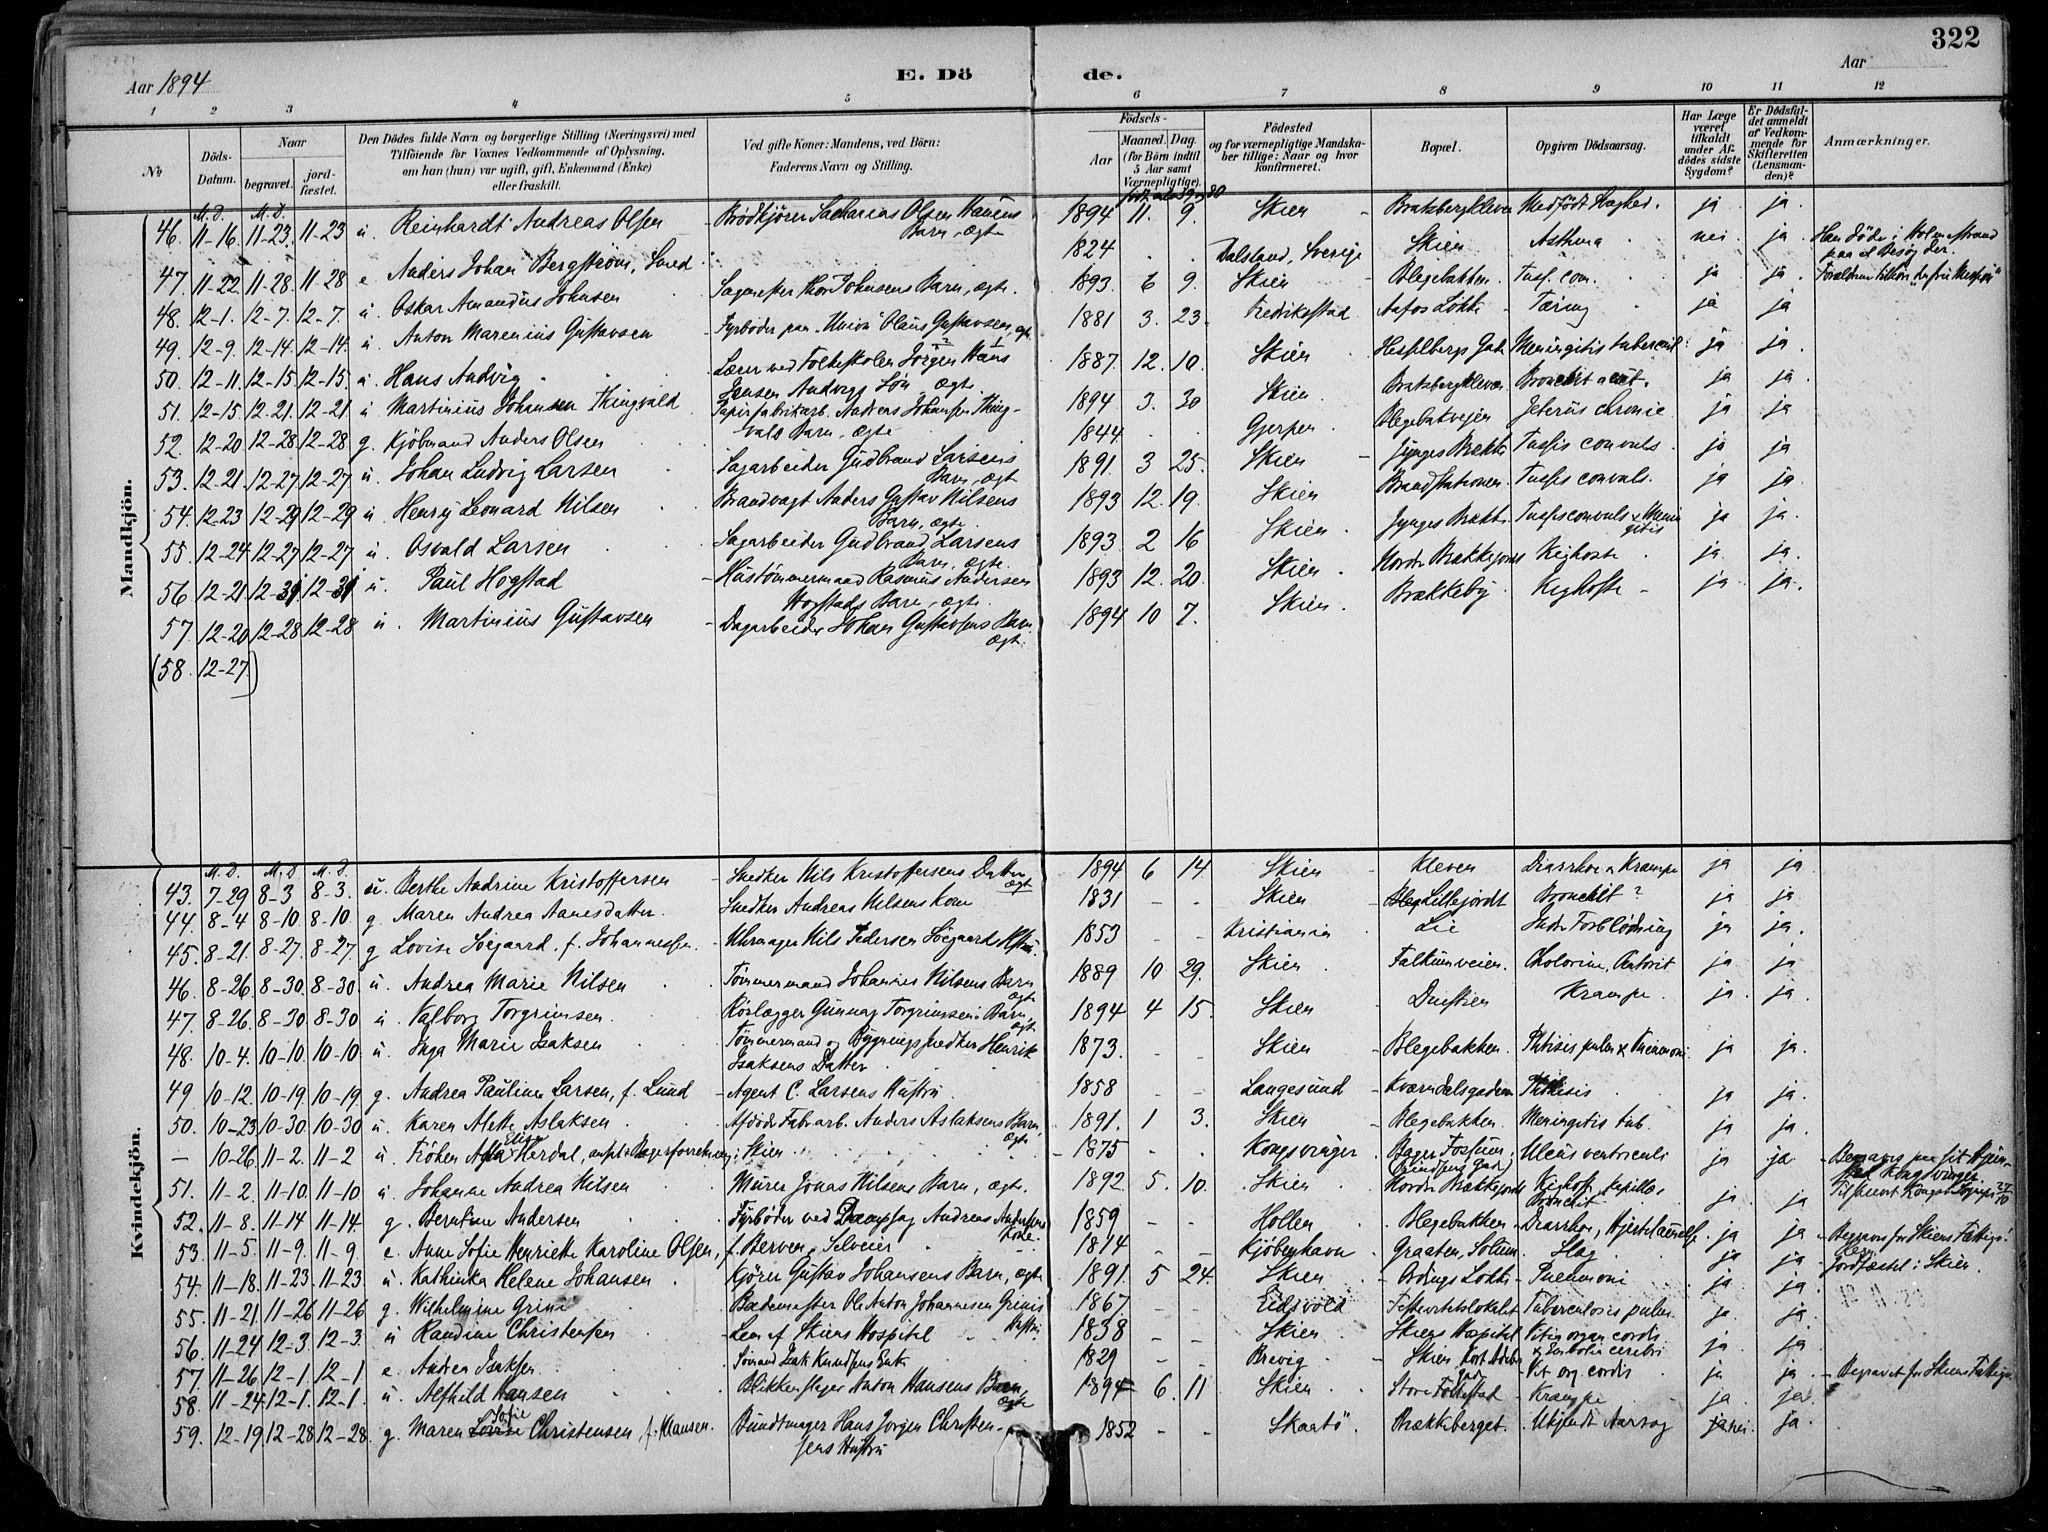 322
Aar 1894
E. Dö de.
Aar
1 2 3 4 5 6 7 8 9 10 11 12
No
Döds-Datum.
Naar
begravet.
jordfæstet.
Den Dödes fulde Navn og borgerlige Stilling (Næringsvei) med Tilföiende for Voxnes Vedkommende af Oplysning, om han (hun) var ugift, gift, Enkemand (Enke) eller fraskilt.
Ved gifte Koner: Mandens, ved Börn: Faderens Navn og Stilling.
Födsels-
Aar
Maaned. Dag.
(for Börn indtil 5 Aar samt Værnepligtige).
Födested og for værnepligtige Mandskaber tillige: Naar og hvor konfirmeret.
Bopæl.
Opgiven Dödsaarsag.
Har Læge været tilkaldt under Afdödes sidste Sygdom?
Er Dödsfaldet anmeldt af Vedkommende for Skifteretten (Lensmanden)?
Anmærkninger.
Mandkjön.
M. D. M. D.
46. 11-16. 11-23. 11-23 u. Reinhardt Andreas Olsen - Brödkjörer Sacharias Olsen Barn, ægte 1894 11. 9. Skien - Bratsbergkleven Medfödt Svaghed. ja ja.
47. 11-22. 11-28. 11-28 e Anders Johan Bergström, Smed 1824 Dalsland, Sverige Skien Asthma nei. ja. Han döde i Holmestrand paa et Besög der.
48. 12-1. 12-7. 12-7. u. Oskar Amandus Johnsen Sagmester Thor Johnsens Barn, ægte. 1893. 6 9. Skien Blegebakken. Tussis con. ja ja.
49. 12-9. 12-14. 12-14. u. Anton Marenius Gustavsen - Fyrböder paa "Union" Olaus Gustavsen, ægte 1881 3. 23. Fredriksstad Aafos Lökke - Tæring ja ja
50. 12-11. 12-15. 12-15. u Hans Andvig Lærer ved Folkeskolen Jörgen Hans Jensen Andvigs Sön, ægte. 1887. 12. 10. Skien Hesselbergs Gade Meningitis tubercul. ja ja.
51. 12-15. 12-21. 12-21. u Martinius Johansen Thingvald Papirfabrikarb. Andreas Johansen Thingvalds Barn, ægte 1894 3. 30 Skien. Bratsbergkleven Bronchit acut. ja ja.
52. 12-20 12-28 12-28 g. Kjöbmand Anders Olsen 1844 Gjerpen Blegebakveien Icterus chronic. ja ja
53. 12-21. 12-27. 12-27 u. Johan Ludvig Larsen Sagarbeider Gudbrand Larsens Barn, ægte 1891. 3 25. Skien - Jynges Brække Tussis convuls. ja ja
54. 12-23 12-29 12-29 u Henry Leonard Nilsen Brandvagt Anders Gustav Nilsens Barn, ægte. 1893 12. 19. Skien Brandstationen Tussis convuls. ja ja.
55. 12-24. 12-27 12-27 u. Osvald Larsen Sagarbeider Gudbrand Larsens Barn, ægte. 1893 2 16 Skien. Jynges Brække Tussis convuls & Meningitis ja ja.
56 12-21 12-31 12-31 u. Paul Hogstad - Hustömmermand Rasmus Andersen Hogstads Barn, ægte. 1893 12. 20 Skien. Nordre Brækkejorde Kighoste ja ja.
57 12-20 12-28 12-28 u. Martinius Gustavsen - Dagarbeider Johan Gustavsens Barn ægte. 1894 10 7. Skien. Brækkeby. Kighoste - ja ja.
(58. 12-27.)
Kvindekjön.
M. D. M. D M. D.
43. 7-29 8-3 8-3. u. Berthe Andrine Kristoffersen - Snedker Nils Kristoffersens Datter ægte 1894 6 14 Skien Kleven Diarrhoe & Krampe ja ja
44. 8-4 8-10 8-10. g. Maren Andrea Aanesdatter. Snedker Andreas Nilsens Kone 1831 - - Skien Lillejordet Bronchit? ja ja
45. 8-21. 8-27. 8-27. g Lovise Söegaard, f. Johannessen - Uhrmager Nils Pedersen Söegaards Hustru. 1853 - - Kristiania Lie Indre Forblödning ja ja.
46. 8-26. 8-30. 8-30 u. Andrea Marie Nilsen Tömmermand Johannes Nilsens Barn ægte 1889 10 29. Skien Falkumveien. Cholerine, ja ja
47. 8-26. 8-30 8-30 u. Valborg Torgrimsen. Rörlægger Gunnar Torgrimsens Barn, ægte 1894 4 15. Skien Duestien Krampe. ja. ja.
48. 10-4. 10-10. 10-10 u. Inga Marie Isaksen Tömmermand og Bygningssnedker Henrik Isaksens Datter 1873. - - Skien Blegebakken. Phtisis pulm & Pneumoni. ja ja.
49 10-12. 10-19 10-19 g. Andrea Pauline Larsen, f. Lund - Agent C. Larsens Hustru 1858 - - Langesund - Kværndalsgaden Phthisis ja ja.
50. 10-23 10-30 10-30 u. Karen Alette Aslaksen Afdöde Fabrarb. Anders Aslaksens Barn, ægte 1891. 1 3. Skien - Blegebakken. Meningitis tub. ja ja.
— 10-26. 11-2. 11-2 u. Fröken Elise Herdal, i Skien - 1875 - - Kongsvinger Bager Fossum, Ulcus ventriculi ja ja Kongsvinger.
51. 11-2. 11-10. 11-10 u. Johanne Andrea Nilsen Murer Jonas Nilsens Barn, ægte. 1892 5. 10. Skien Nordre Brækkejorde Kighoste, Bronchit ja ja
52. 11-8. 11-14 11-14 g. Berntine Andersen Fyrböder ved Dampsag Andreas Andersens Kone. 1859 - - Hollen Blegebakken - Diarrhoe, ja ja
53. 11-5. 11-9. 11-9 e. Anne Sofie Henriette Karoline Olsen, f. Berven, Selveier 1814 - - Kjöbenhavn Graaten, Solum. Slag ja ja. Begravet for Skiens Fattigv. Jordfæstet i Skien.
54. 11-18. 11-23 11-23. u. Kathinka Helene Johansen Kjörer Gustav Johansens Barn, ægte 1891. 5 24. Skien - Lökke - Pneumoni ja ja.
55. 11-21 11-26 11-26 g. Wilhelmine Grini Bademester Ole Anton Johannesen Grinis Hustru 1867. - - Eidsvold Tuberculosis pulm. ja ja.
56. 11-24 12-3. 12-3. u Randine Christensen Lem af Skiens Hospital 1838 - - Skien Skiens Hospital Vitium organ cordis & Embolia cerebri ja ja
57. 11-26 12-1. 12-1 e. Andrea Isaksen. Sömand Isak Knudsens Enke 1829 - - Brevig Skien Vit org cordis ja ja. - Begravet for Skiens Fattigv.
58. 11-24 12-1. 12-1. u. Alfhild Hansen Blikkenslager Anton Hansens Barn, ægte 1894 6. 11 Skien Store Falkestad - Krampe ja. ja.
59. 12-19. 12-28 12-28. g. Maren Lovise Sofie Christensen f. Klausen. Bundtmager Hans Jörgen Christensens Hustru 1852 - - Skaatö Brækkeberget. Ukjendt Aarsag ja nei. ja.